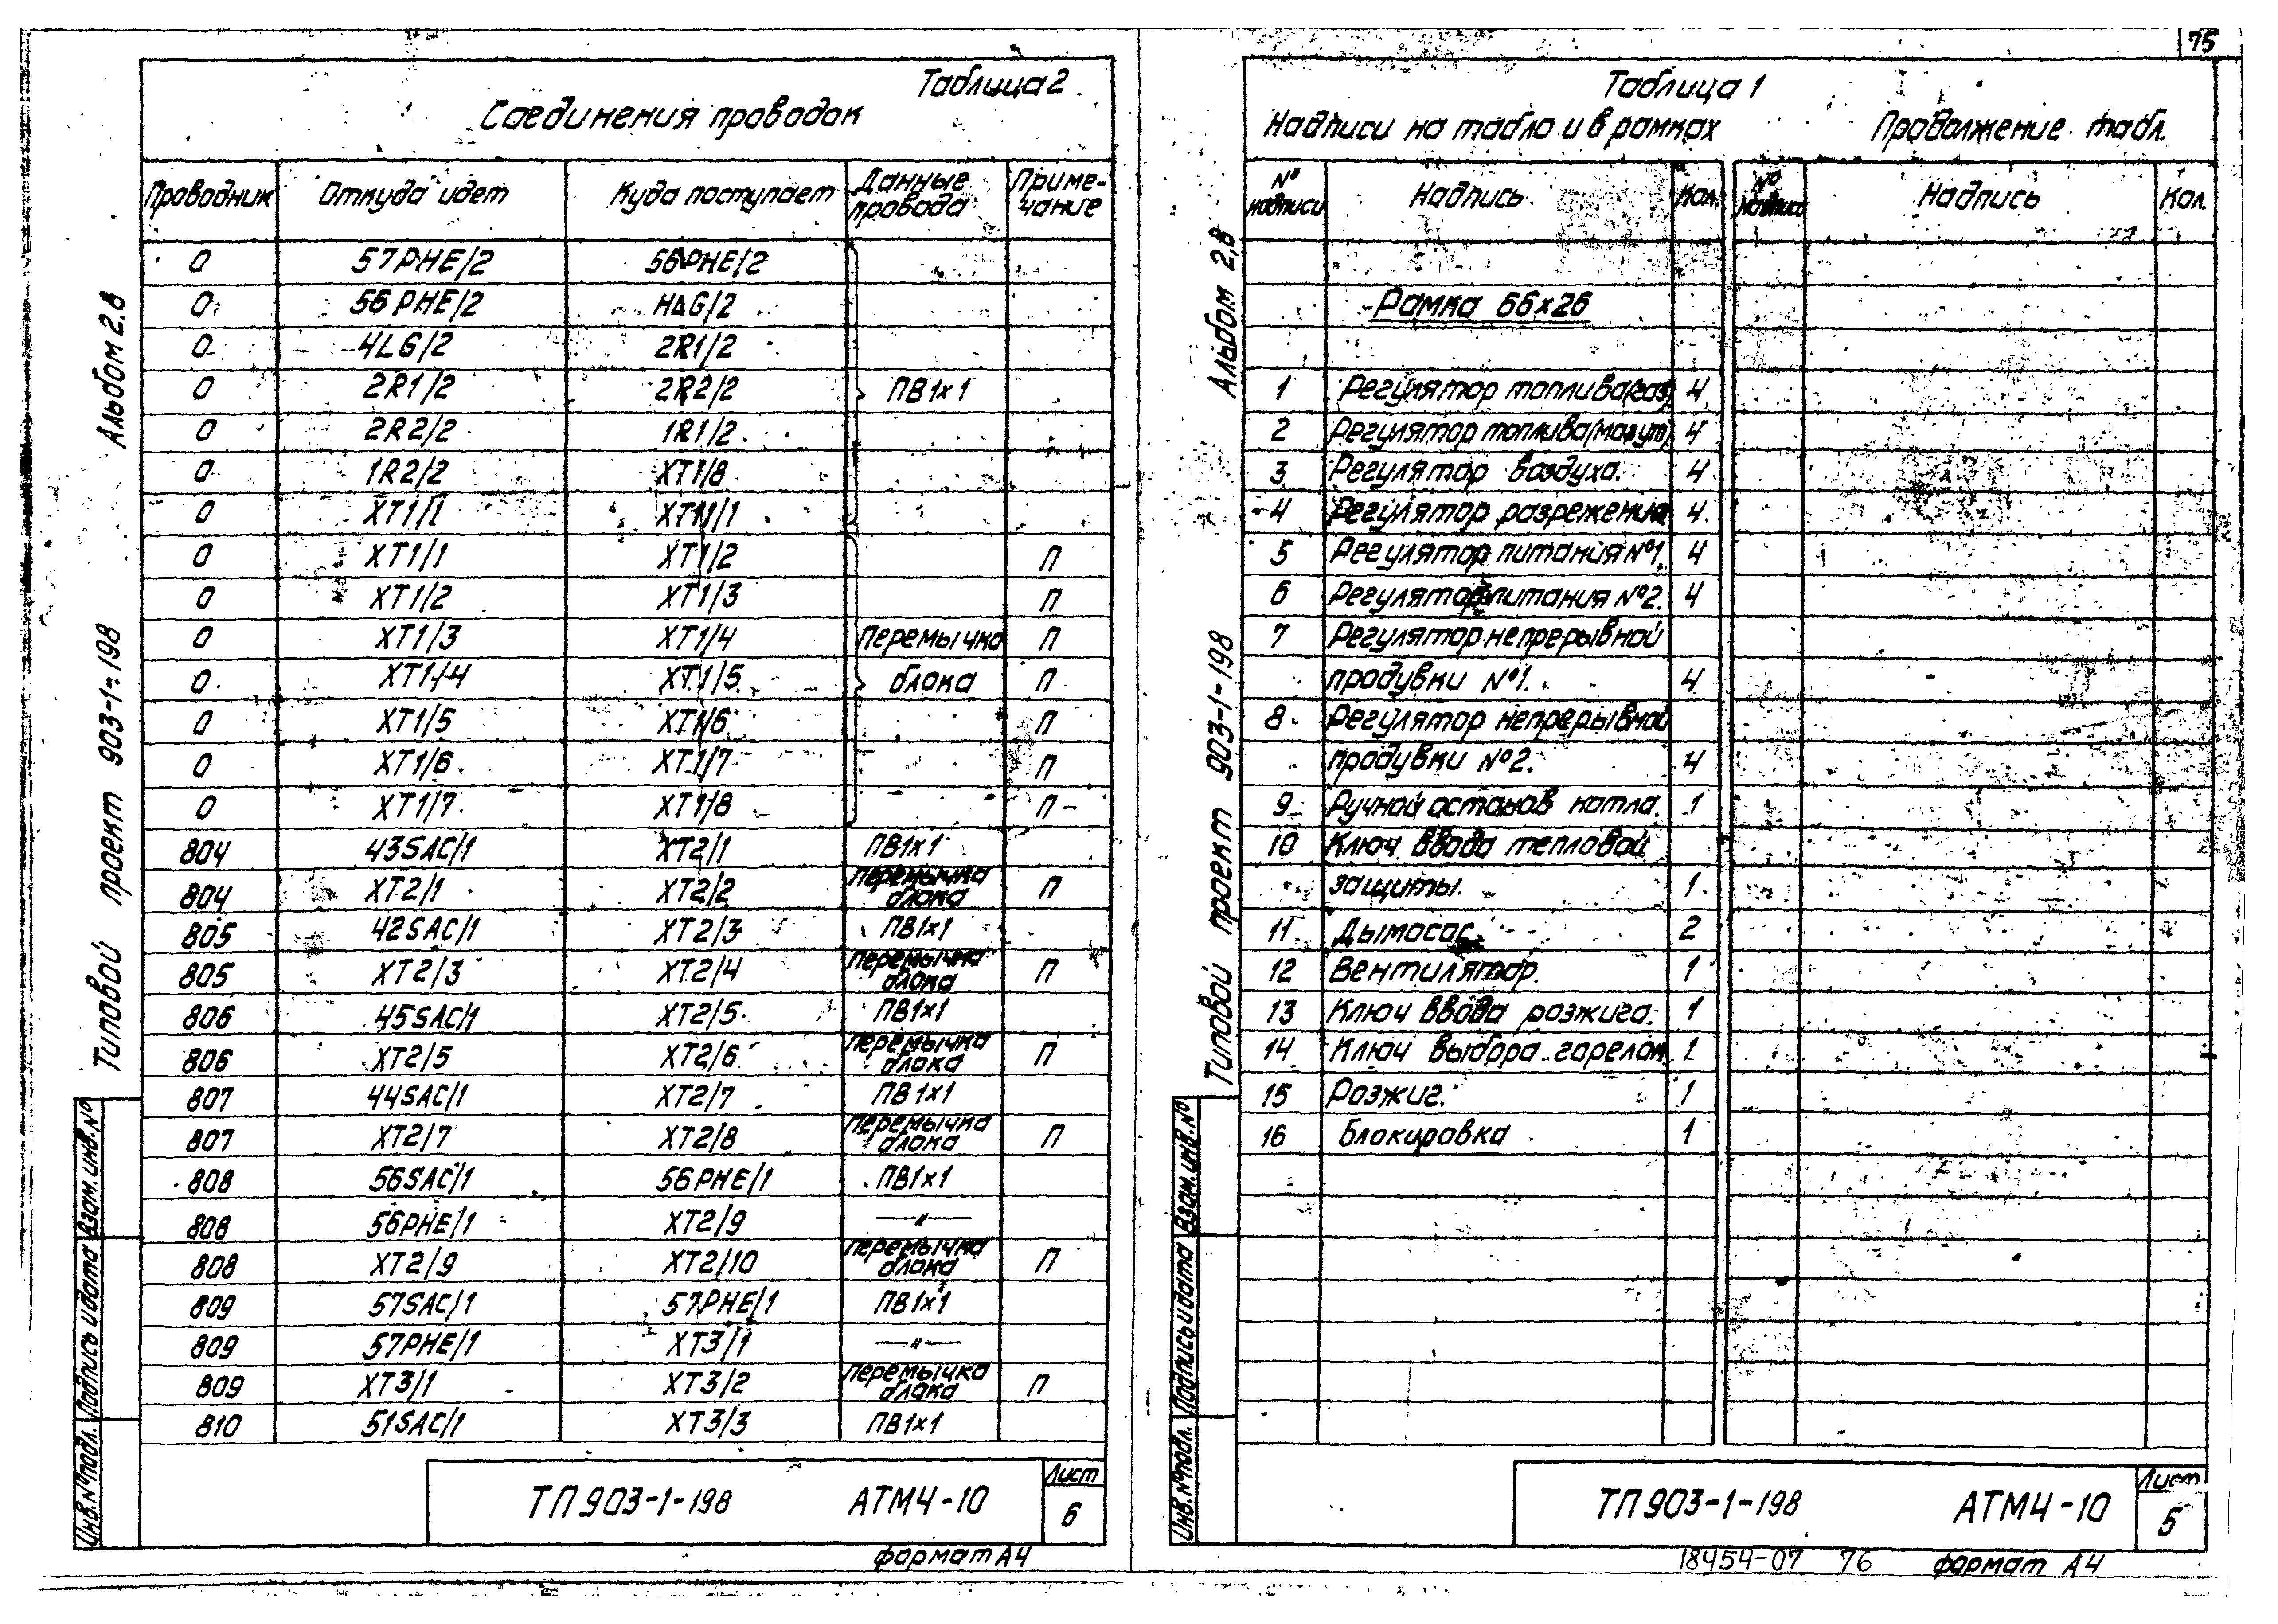 75
Таблица 2
Соединения проводок
Проводник Откуда идет Куда поступает Данные провода Примечание
0 57PHE/2 56PHE/2
0 56PHE/2 HLG/2
0 4LG/2 2R1/2
0 2R1/2 2R2/2 ПВ1х1
0 2R2/2 1R1/2
0 1R2/2 XT1/8
0 XT1/1 XT11/1
0 XT1/1 XT1/2 П
0 XT1/2 XT1/3 П
0 XT1/3 XT1/4 перемычка П
0 XT1/4 XT1/5 блока П
0 XT1/5 XT1/6 П
0 XT1/6 XT1/7 П
0 XT1/7 XT1/8 П
804 43SAC/1 XT2/1 ПВ1х1
804 XT2/1 XT2/2 перемычка блока П
805 42SAC/1 XT2/3 ПВ1х1
805 XT2/3 XT2/4 перемычка блока П
806 45SAC/1 XT2/5 ПВ1х1
806 XT2/5 XT2/6 перемычка блока П
807 44SAC/1 XT2/7 ПВ1х1
807 XT2/7 XT2/8 перемычка блока П
808 56SAC/1 56PHE/1 ПВ1х1
808 56PHE/1 XT2/9 —"—
808 XT2/9 XT2/10 перемычка блока П
809 57SAC/1 57PHE/1 ПВ1х1
809 57PHE/1 XT3/1 —"—
809 XT3/1 XT3/2 перемычка блока П
810 51SAC/1 XT3/3 ПВ1х1
Альбом 2.8
Типовой проект 903-1-198
Взам.инв.№
Подпись и дата
Инв.№подл.
ТП903-1-198 АТМ4-10
Лист
6
формат А4
Таблица 1
Надписи на табло и в рамках Продолжение табл.
№ надписи Надпись Кол. № надписи Надпись Кол.
Рамка 66х26
1 Регулятор топлива(газ) 4
2 Регулятор топлива(мазут) 4
3 Регулятор воздуха. 4
4 Регулятор разрежения 4
5 Регулятор питания №1. 4
6 Регулятор питания №2. 4
7 Регулятор непрерывной
продувки №1. 4
8 Регулятор непрерывной
продувки №2. 4
9 Ручной останов котла. 1
10 Ключ ввода тепловой
защиты. 1
11 Дымосос. 2
12 Вентилятор. 1
13 Ключ ввода розжига. 1
14 Ключ выбора горелок 1
15 Розжиг. 1
16 Блокировка 1
Альбом 2.8
Типовой проект 903-1-198
Взам.инв.№
Подпись и дата
Инв.№подл.
ТП903-1-198 АТМ4-10
Лист
5
18454-07 76 формат А4